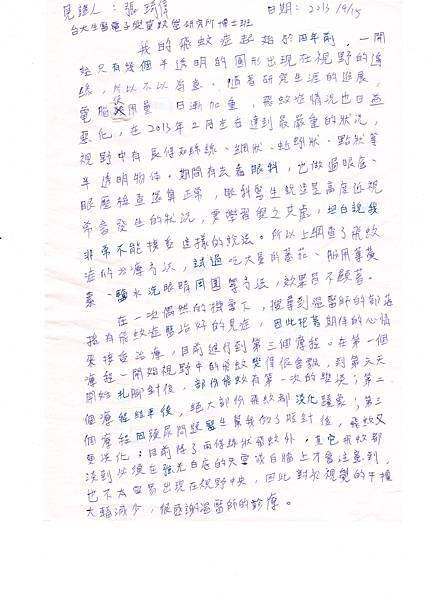 見證人：張琦偉 日期：2013/9/15
台大生醫電子與資訊學研究所博士班
我的飛蚊症起始於四年前，一開
始只有幾個半透明的圖形出現在視野的邊
緣，所以不以為意。隨著研究生涯的進展，
電腦使用量日漸加重，飛蚊症情況也日益
惡化，在2013年2月左右達到最嚴重的狀況，
視野中有長條如絲線、網狀、蚯蚓狀、點狀等
半透明物体。期間有去看眼科，也做過眼底、
眼壓檢查還算正常，眼科醫生說這是高度近視
常會發生的狀況，要學習與之共處，坦白說我
非常不能接受這樣的說法。所以上網查了飛蚊
症的治療方法，試過吃大量的蕃茄、服用葉黃
素、鹽水洗眼睛周圍等方法，效果皆不顯著。
在一次偶然的機會下，搜尋到溫醫師的部落
格有飛蚊症醫治好的見証，因此抱著期待的心情
來接受治療，目前進行到第三個療程。在第一個
療程一開始視野中的飛蚊變得很會飄，到第六天
開始扎腳針後，部份飛蚊有第一次的變淡；第二
個療程結束後，絕大部份飛蚊都淡化蹤影；第三
個療程回
更淡化；目前除了兩條絲狀飛蚊外，其它飛蚊都
淡到必須在強光白底的天空或白牆上才會注意到，
也不太容易出現在視野中央，因此對於視覺的干擾
大幅減少，很感謝溫醫師的診療。